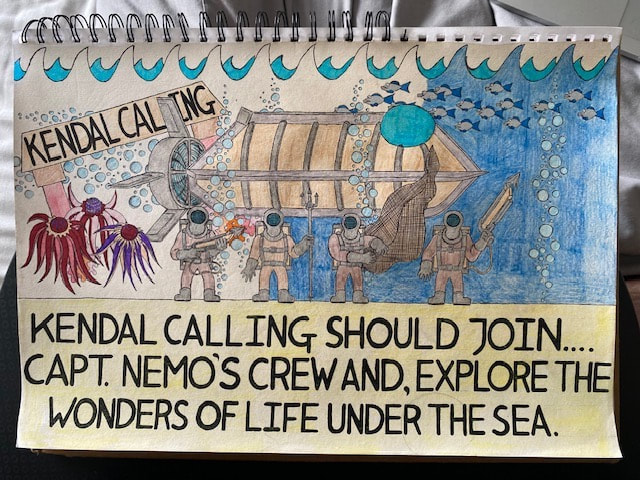 KENDAL CALLING
KENDAL CALLING SHOULD JOIN....
CAPT. NEMO'S CREW AND, EXPLORE THE
WONDERS OF LIFE UNDER THE SEA.